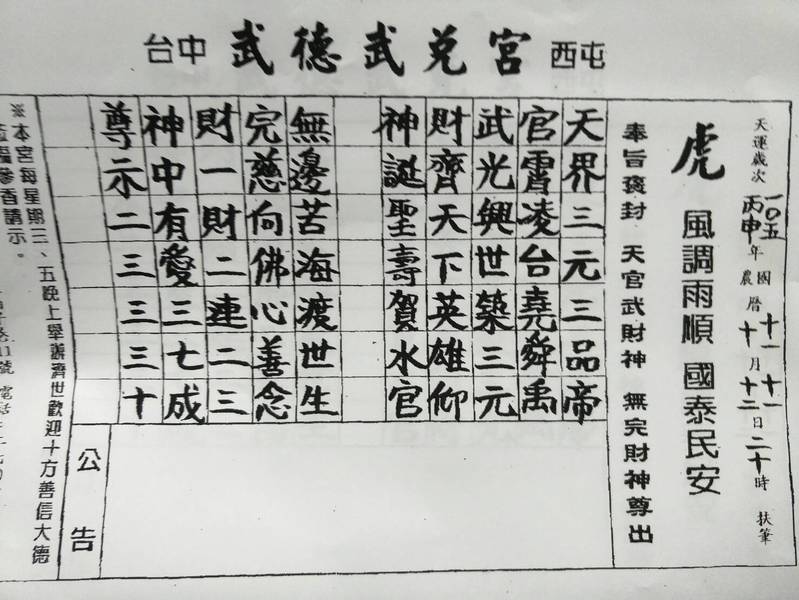 台中 武德武兌宮 西屯
天運歲次 一〇五 丙申 年 國 農曆 十一 十 月 十一 十三 日 二十 時 扶筆
虎 風調雨順 國泰民安
奉旨褒封 天官武財神 無完財神尊出
天界三元三品帝
官霄凌台堯舜禹
武光興世築三元
財齊天下英雄仰
神誕聖壽賀水官
無邊苦海渡世生
完慈向佛心善念
財一財二連二三
神中有愛三七成
尊示二三三三十
公告
※本宮每星期三、五晚上舉辦濟世歡迎十方善信大德
參香請示。 號 電話